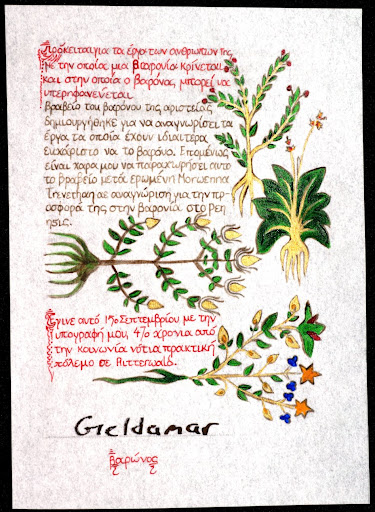 Πρόκειται για τα έργα των ανθρώπων της,
με την οποία μια Βαρονία κρίνεται
και στην οποία ο βαρόνος, μπορεί να
υπερηφανεύεται.
βραβείο του βαρόνου της αριστείας
δημιουργήθηκε για να αναγνωρίσει τα
έργα τα οποία έχουν ιδιαιτερα
ευχάριστο να το βαρόνο. Επομένως
είναι χαρα μου να παραχωρήσει αυτο
το βραβείο μετά ερωμένη Morwenna
Trenethan σε αναγνώριση για την πρ-
οσφορά της στην βαρονία στο
Εγινε αυτό 15ο Σεπτεμβρίου με την
υπογραφή μου, 47ο χρονια από
την κοινωνία νότια πρακτική
πόλεμο σε Ritterwald.
Gieldamar
βαρώνος